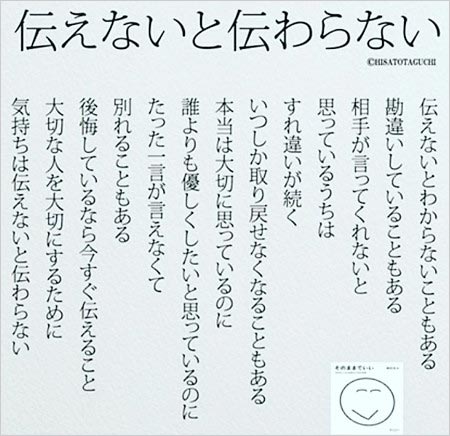 伝えないと伝わらない
©HISATOTAGUCHI
伝えないとわからないこともある
勘違いしていることもある
相手が言ってくれないと
思っているうちは
すれ違いが続く
いつしか取り戻せなくなることもある
本当は大切に思っているのに
誰よりも優しくしたいと思っているのに
たった一言が言えなくて
別れることもある
後悔しているなら今すぐ伝えること
大切な人を大切にするために
気持ちは伝えないと伝わらない
そのままでいい